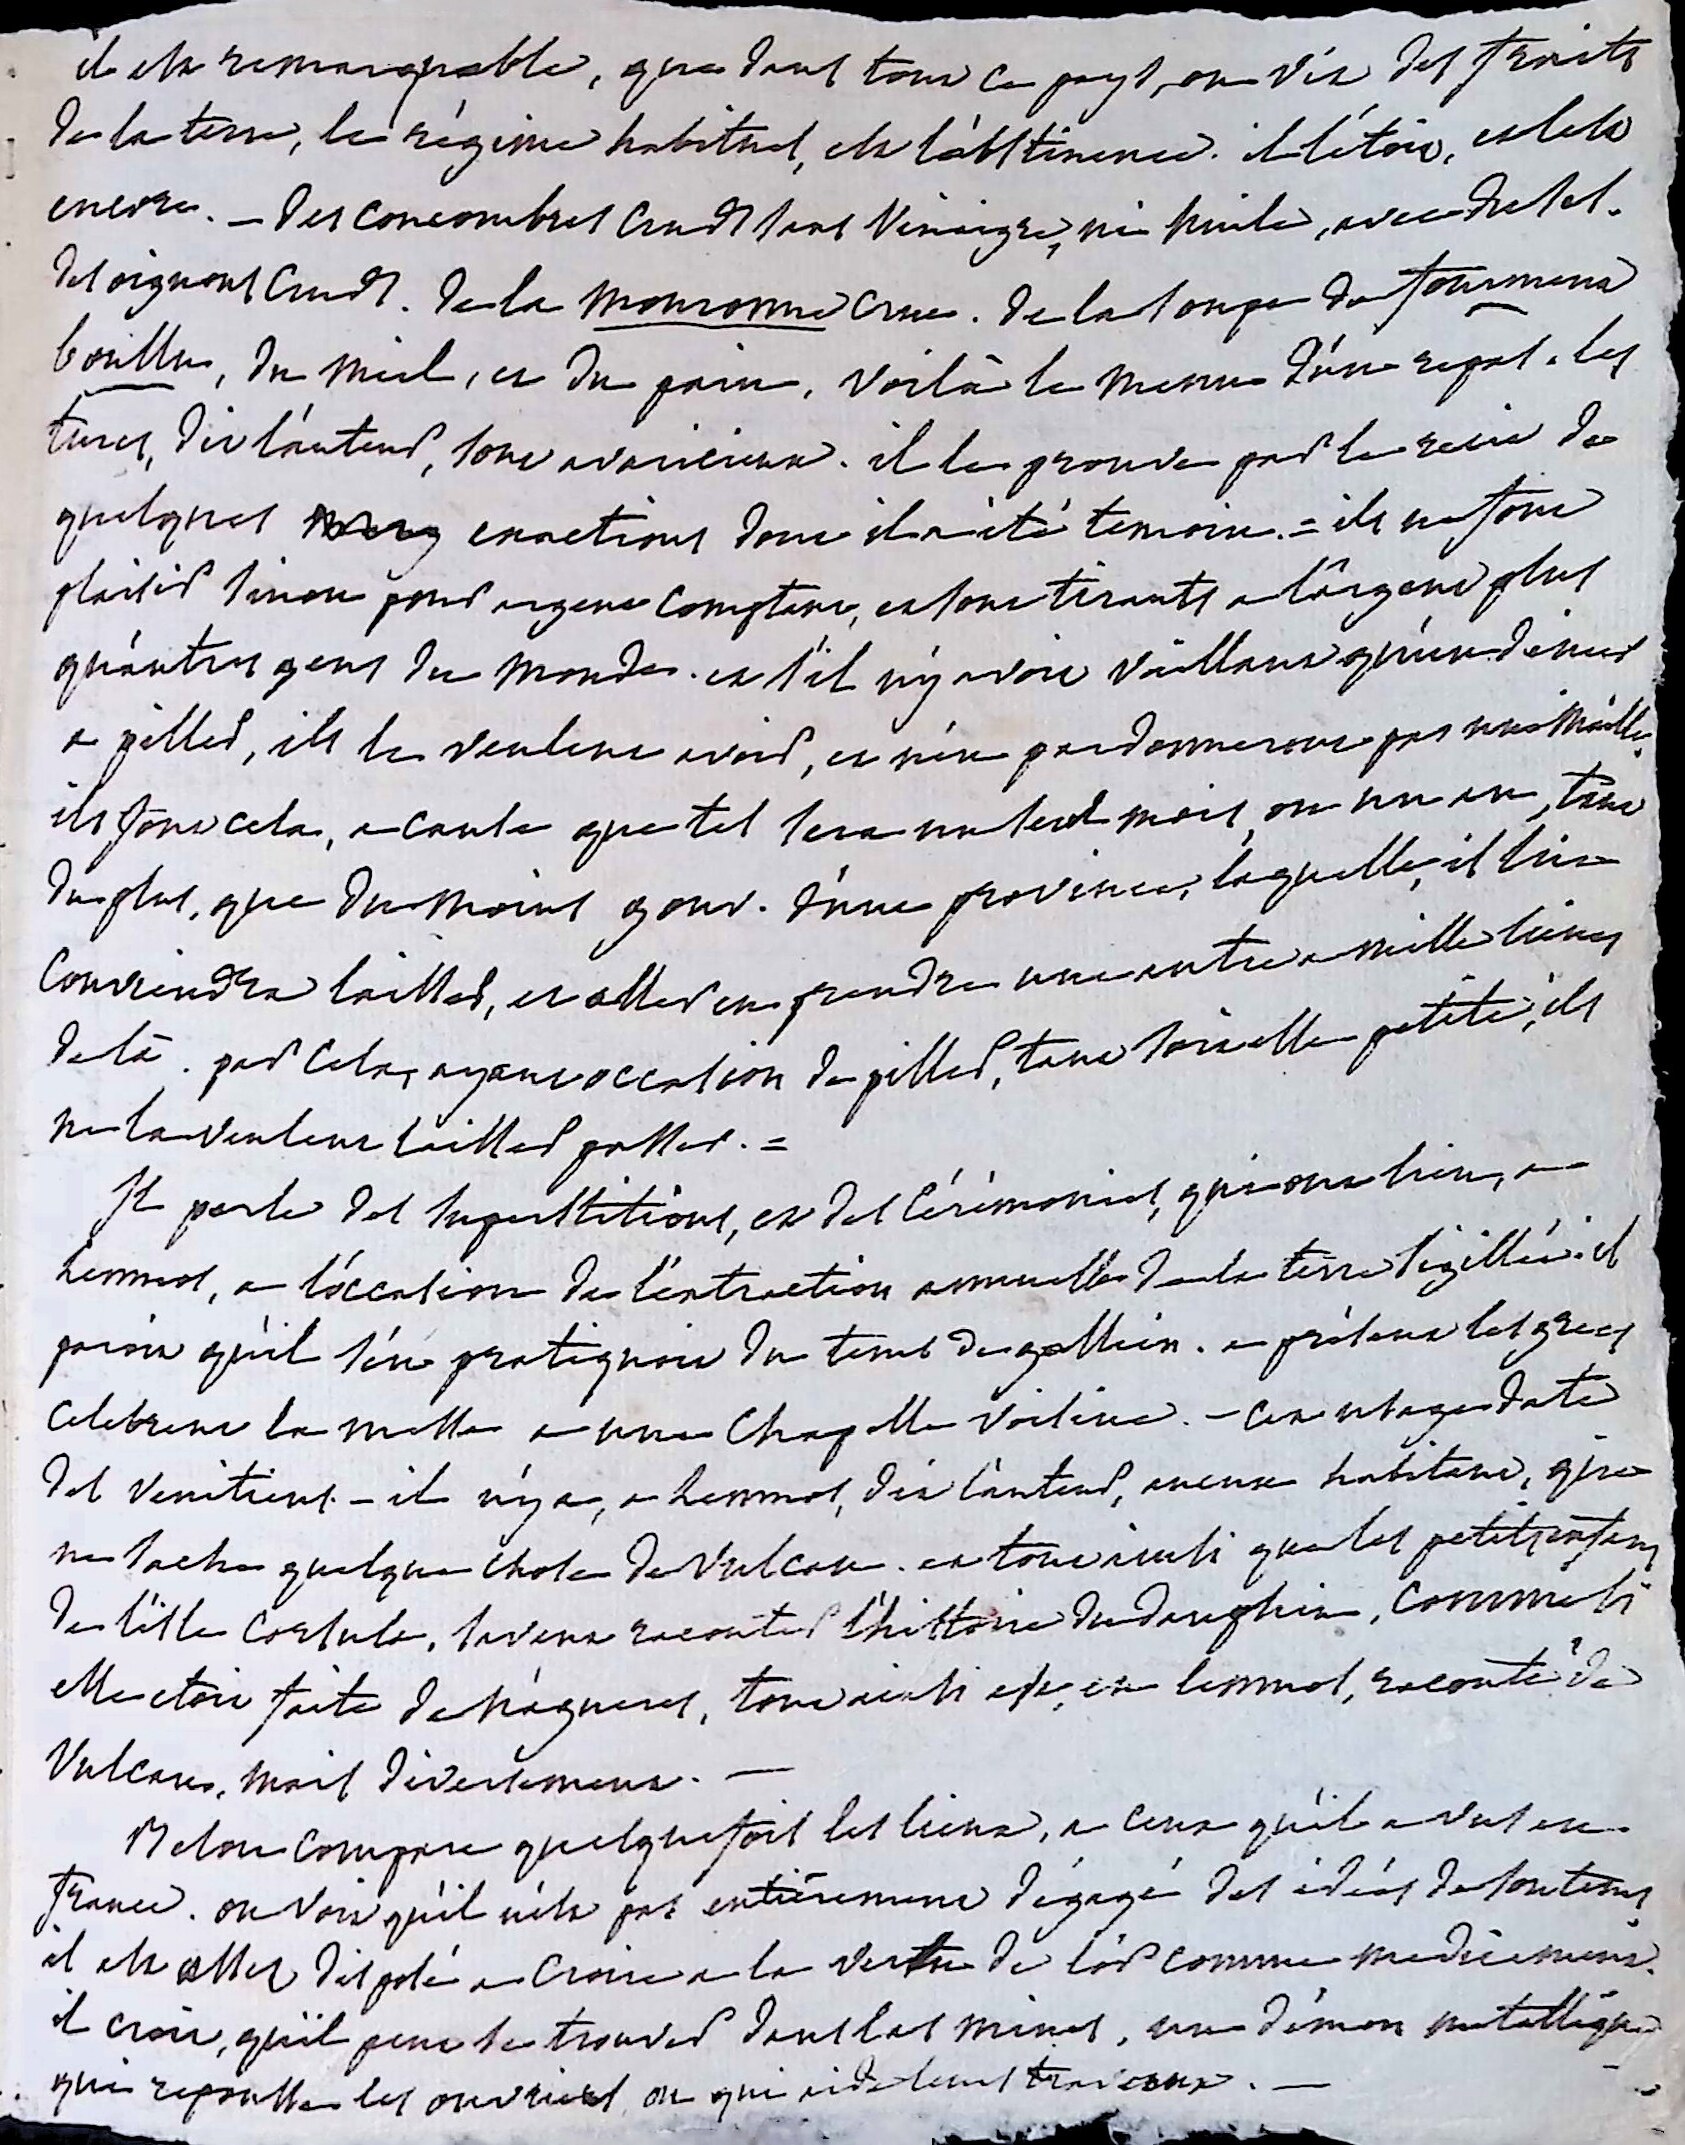 il est remarquable, que dans tout ce pays, on vit des fruits
de la terre, le régime habituel, est l'abstinence. il l'étoit, et l'est
encore. — des concombres cruds sans vinaigre, ni huile, avec du sel.
des oignons cruds. de la mouronne crue. de la soupe de fourment
bouillu, du miel, et du pain, voilà le menu d'un repas. les
turcs, dit l'auteur, sont avaricieux. il le prouve par le recit de
quelques exactions dont il a été temoin. = ils ne font
plaisir sinon pour argent comptant, et sont tirants a l'argent plus
qu'autres gens du monde. et s'il n'y avoit vaillant qu'un denier
a piller, ils le veulent avoir, et n'en pardonneront pas une maille.
ils font cela, a cause que tel sera un seul mois, ou un an, tant
du plus, que du moins gouv. d'une province, laquelle, il luit
conviendra laisser, et aller en prendre une autre a mille lieues
delà. par cela, ayant occasion de piller, tant soit elle petite, ils
ne la veulent laisser passer. =
Il parle des superstitions, et des cérémonies, qui ont lieu, a
Lemnos, a l'occasion de l'extraction annuelle de la terre sigillée. il
paroit qu'il s'en pratiquoit du tems de gallien. a présent les grecs
celebrent la messe a une chapelle voisine. — cet usage date
des venitiens. — il n'y a, a Lemnos, dit l'auteur, aucun habitant, qui
ne sache quelque chose de Vulcan. et tout ainsi que les petits enfans
de l'isle Corsula, savent raconter l'histoire du dauphin, comme si
elle etoit faite de n'agueres, tout ainsi est, en lemnos, raconté de
Vulcan, mais diversement. —
Belon compare quelquefois les lieux, a ceux qu'il a vus en
france. on voit qu'il n'est pas entièrement dégagé des idées de son tems
il est assez disposé a croire a la vertu de l'or comme medicament.
il croit, qu'il peut se trouver dans les mines, un démon metallique
qui repousse les ouvriers, ou qui aide leurs travaux. —